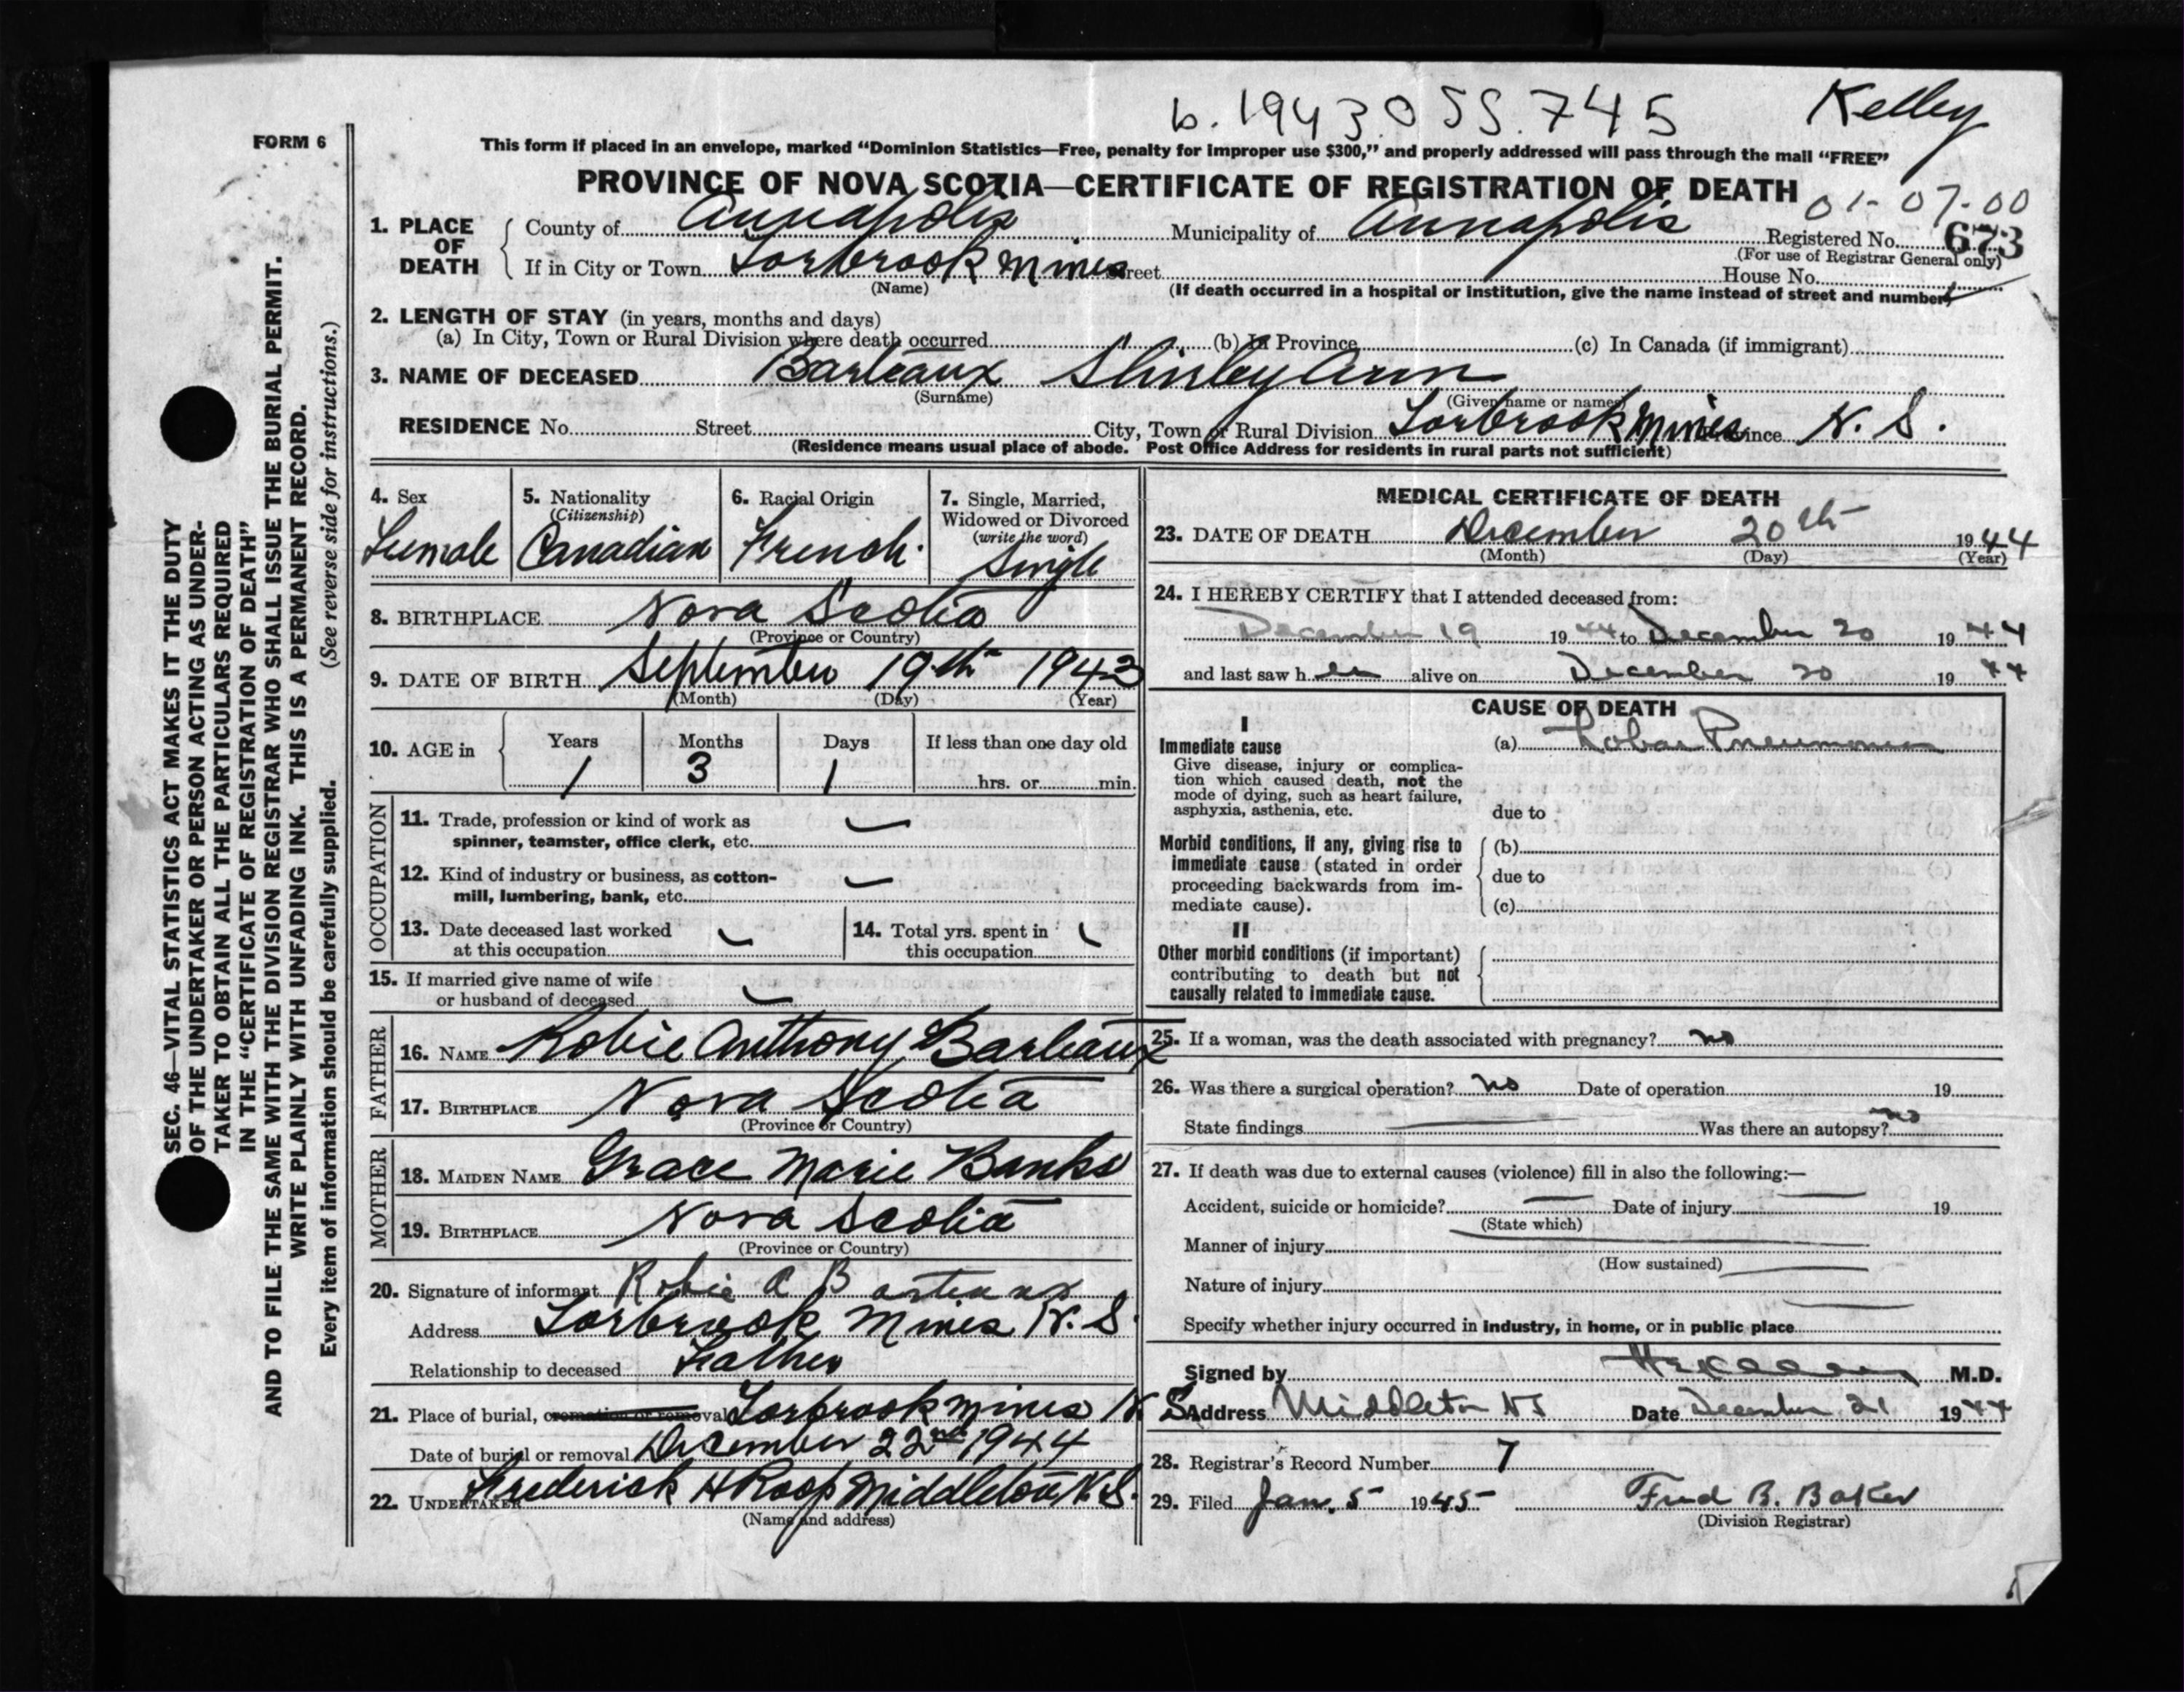 b. 1943.055.745
Kelley
FORM 6
This form if placed in an envelope, marked “Dominion Statistics—Free, penalty for improper use $300,” and properly addressed will pass through the mail “FREE”
PROVINCE OF NOVA SCOTIA—CERTIFICATE OF REGISTRATION OF DEATH
01-07-00
1. PLACE OF DEATH
County of Annapolis Municipality of Annapolis Registered No. 673
(For use of Registrar General only)
If in City or Town Torbrook Mines Street House No.
(Name) (If death occurred in a hospital or institution, give the name instead of street and number)
2. LENGTH OF STAY (in years, months and days)
(a) In City, Town or Rural Division where death occurred (b) In Province (c) In Canada (if immigrant)
3. NAME OF DECEASED Barteaux Shirley Ann
(Surname) (Given name or names)
RESIDENCE No. Street City, Town or Rural Division Torbrook Mines Province N. S.
(Residence means usual place of abode. Post Office Address for residents in rural parts not sufficient)
4. Sex
Female
5. Nationality
(Citizenship)
Canadian
6. Racial Origin
French
7. Single, Married,
Widowed or Divorced
(write the word)
Single
8. BIRTHPLACE Nova Scotia
(Province or Country)
9. DATE OF BIRTH September 19th 1943
(Month) (Day) (Year)
10. AGE in Years Months Days If less than one day old
1 3 1 hrs. or min.
OCCUPATION
11. Trade, profession or kind of work as
spinner, teamster, office clerk, etc.
12. Kind of industry or business, as cotton-
mill, lumbering, bank, etc.
13. Date deceased last worked
at this occupation
14. Total yrs. spent in
this occupation
15. If married give name of wife
or husband of deceased
FATHER
16. NAME Robie Anthony Barteaux
17. BIRTHPLACE Nova Scotia
(Province or Country)
MOTHER
18. MAIDEN NAME Grace Marie Banks
19. BIRTHPLACE Nova Scotia
(Province or Country)
20. Signature of informant Robie A Barteaux
Address Torbrook Mines N. S.
Relationship to deceased Father
21. Place of burial, cremation or removal Torbrook Mines N S
Date of burial or removal December 22nd 1944
22. UNDERTAKER Frederick H Roop Middleton N. S.
(Name and address)
MEDICAL CERTIFICATE OF DEATH
23. DATE OF DEATH December 20th 1944
(Month) (Day) (Year)
24. I HEREBY CERTIFY that I attended deceased from:
December 19 1944 to December 20 1944
and last saw her alive on December 20 1944
CAUSE OF DEATH
I
Immediate cause (a) Lobar Pneumonia
Give disease, injury or complica-
tion which caused death, not the
mode of dying, such as heart failure,
asphyxia, asthenia, etc. due to
Morbid conditions, if any, giving rise to (b)
immediate cause (stated in order
proceeding backwards from im- due to
mediate cause). (c)
II
Other morbid conditions (if important)
contributing to death but not
causally related to immediate cause.
25. If a woman, was the death associated with pregnancy? no
26. Was there a surgical operation? no Date of operation 19
State findings Was there an autopsy? no
27. If death was due to external causes (violence) fill in also the following:—
Accident, suicide or homicide? Date of injury 19
(State which)
Manner of injury
(How sustained)
Nature of injury
Specify whether injury occurred in industry, in home, or in public place
Signed by M.D.
Address Middleton NS Date December 21 1944
28. Registrar's Record Number 7
29. Filed Jan. 5 1945 Fred B. Baker
(Division Registrar)
SEC. 46—VITAL STATISTICS ACT MAKES IT THE DUTY
OF THE UNDERTAKER OR PERSON ACTING AS UNDER-
TAKER TO OBTAIN ALL THE PARTICULARS REQUIRED
IN THE “CERTIFICATE OF REGISTRATION OF DEATH”
AND TO FILE THE SAME WITH THE DIVISION REGISTRAR WHO SHALL ISSUE THE BURIAL PERMIT.
WRITE PLAINLY WITH UNFADING INK. THIS IS A PERMANENT RECORD.
Every item of information should be carefully supplied. (See reverse side for instructions.)